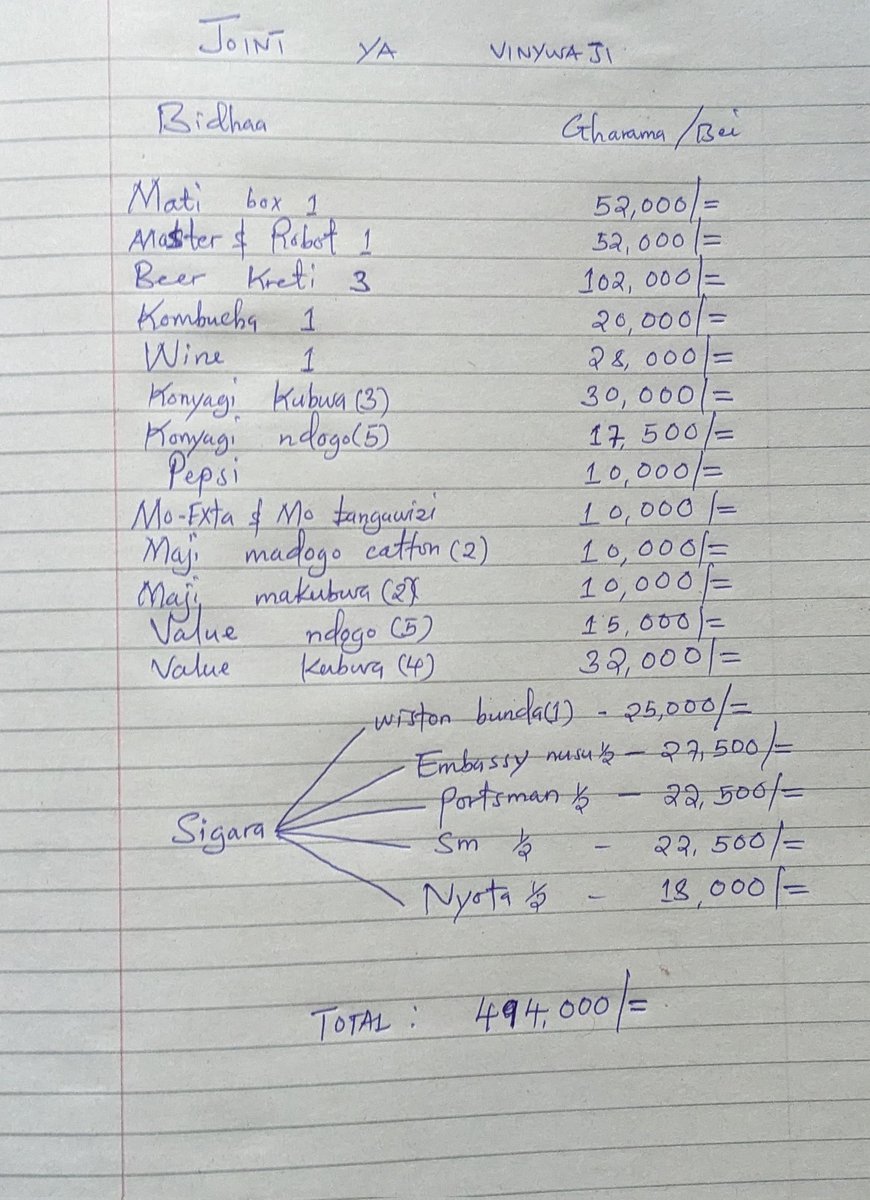 JOINT YA VINYWAJI
Bidhaa Gharama/Bei
Mati box 1 52,000/=
Master & Robot 1 52,000/=
Beer Kreti 3 102,000/=
Kombucha 1 20,000/=
Wine 1 28,000/=
Konyagi Kubwa (3) 30,000/=
Konyagi ndogo (5) 17,500/=
Pepsi 10,000/=
Mo-Exta & Mo tangawizi 10,000/=
Maji madogo catton (2) 10,000/=
Maji makubwa (2) 10,000/=
Value ndogo (5) 15,000/=
Value Kubwa (4) 32,000/=
Wiston bunda(1) - 25,000/=
Embassy nusu ½ - 27,500/=
Portsman ½ - 22,500/=
Sigara
Sm ½ - 22,500/=
Nyota ½ - 18,000/=
TOTAL : 494,000/=